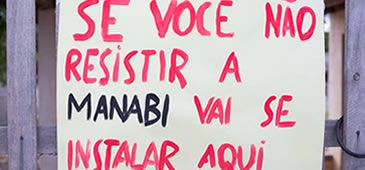 SE VOCÊ NÃO
RESISTIR A
MANABI VAI SE
INSTALAR AQUI